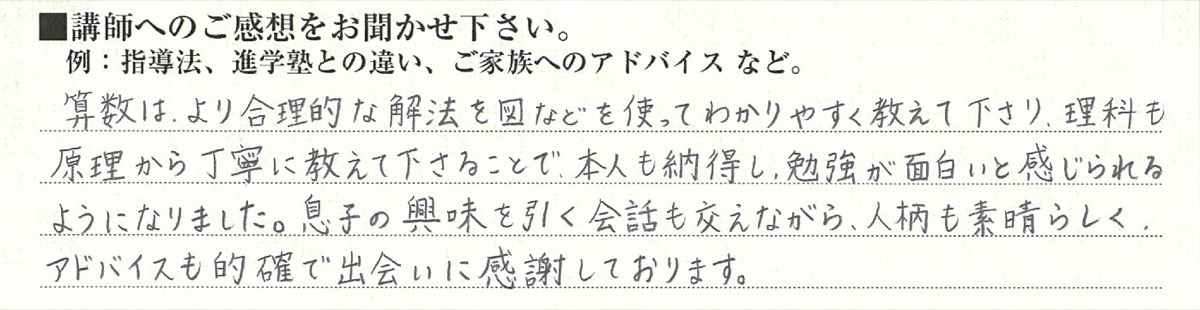 ■講師へのご感想をお聞かせ下さい。
例：指導法、進学塾との違い、ご家族へのアドバイス など。
算数は、より合理的な解法を図などを使ってわかりやすく教えて下さり、理科も
原理から丁寧に教えて下さることで、本人も納得し、勉強が面白いと感じられる
ようになりました。息子の興味を引く会話も交えながら、人柄も素晴らしく、
アドバイスも的確で出会いに感謝しております。